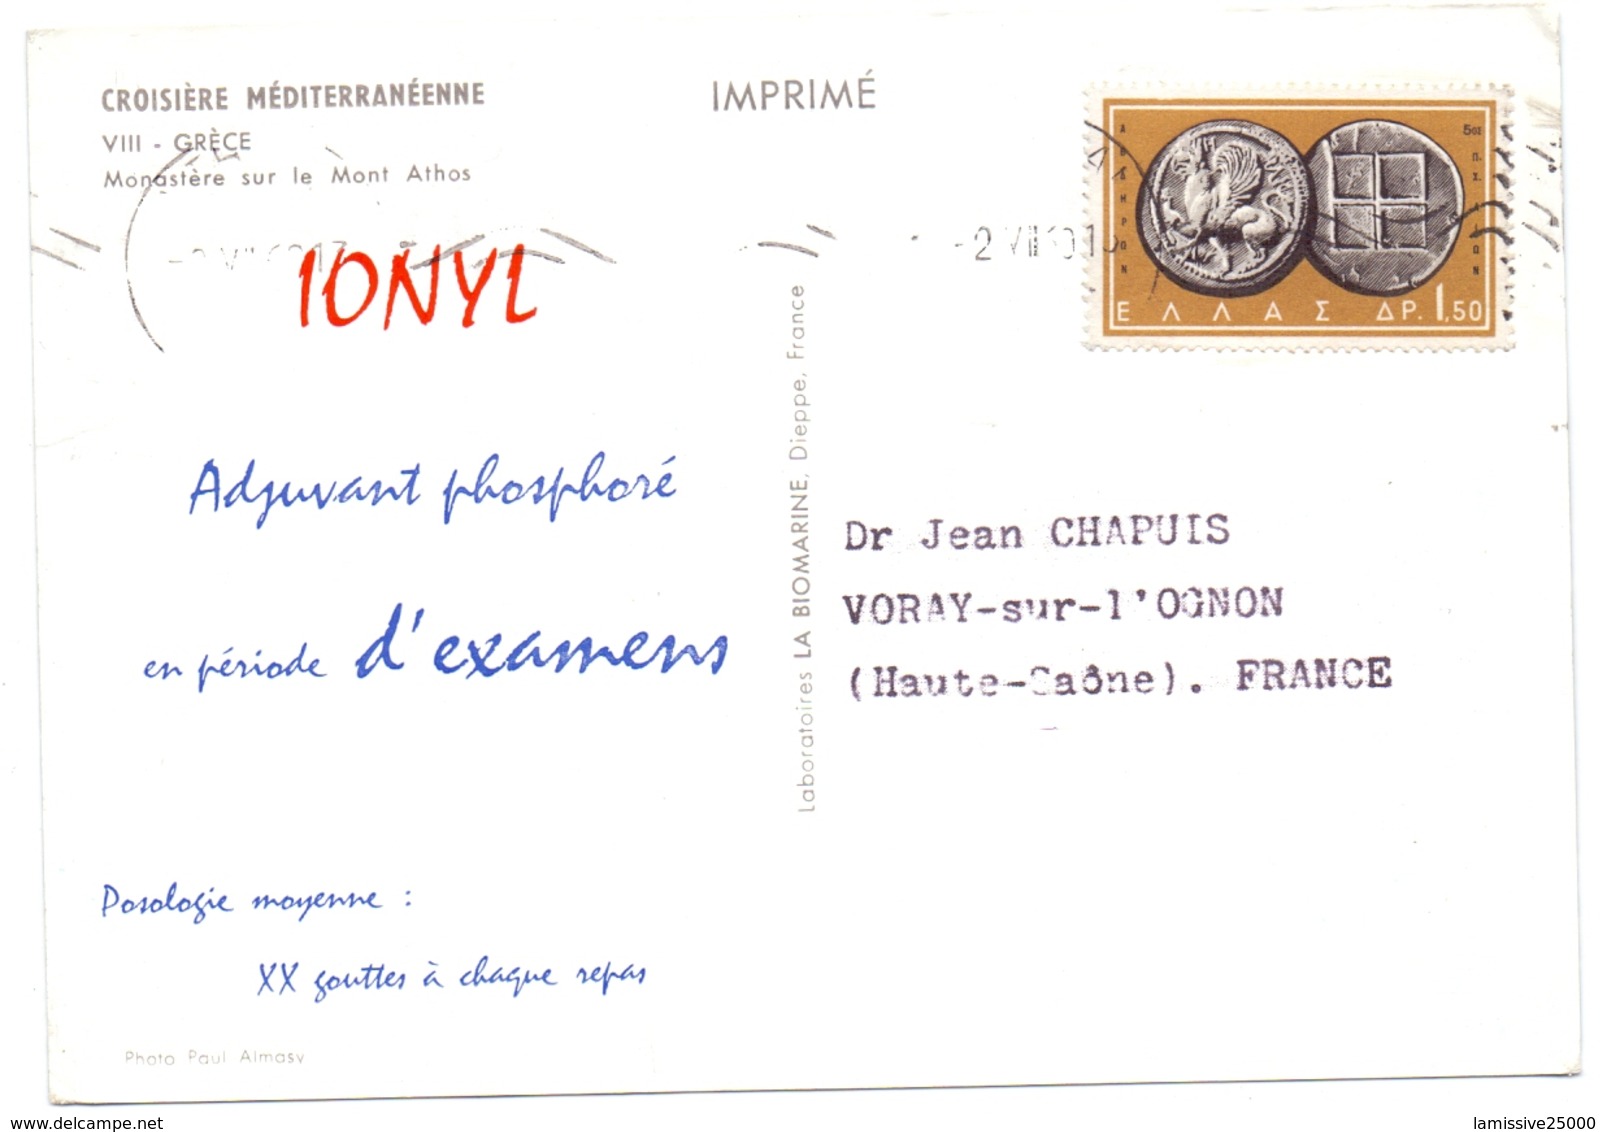 CROISIÈRE MÉDITERRANÉENNE
VIII - GRÈCE
Monastère sur le Mont Athos
IMPRIMÉ
ΑΒΔΗΡΩΝ
5ος π.Χ. ΑΙΩΝ
ΕΛΛΑΣ ΔΡ. 1,50
-2 VII 60.13
IONYL
Adjuvant phosphoré
en période d'examens
Posologie moyenne :
XX gouttes à chaque repas
Photo Paul Almasy
Laboratoires LA BIOMARINE, Dieppe, France
Dr Jean CHAPUIS
VORAY-sur-l'OGNON
(Haute-Saône). FRANCE
lamissive25000